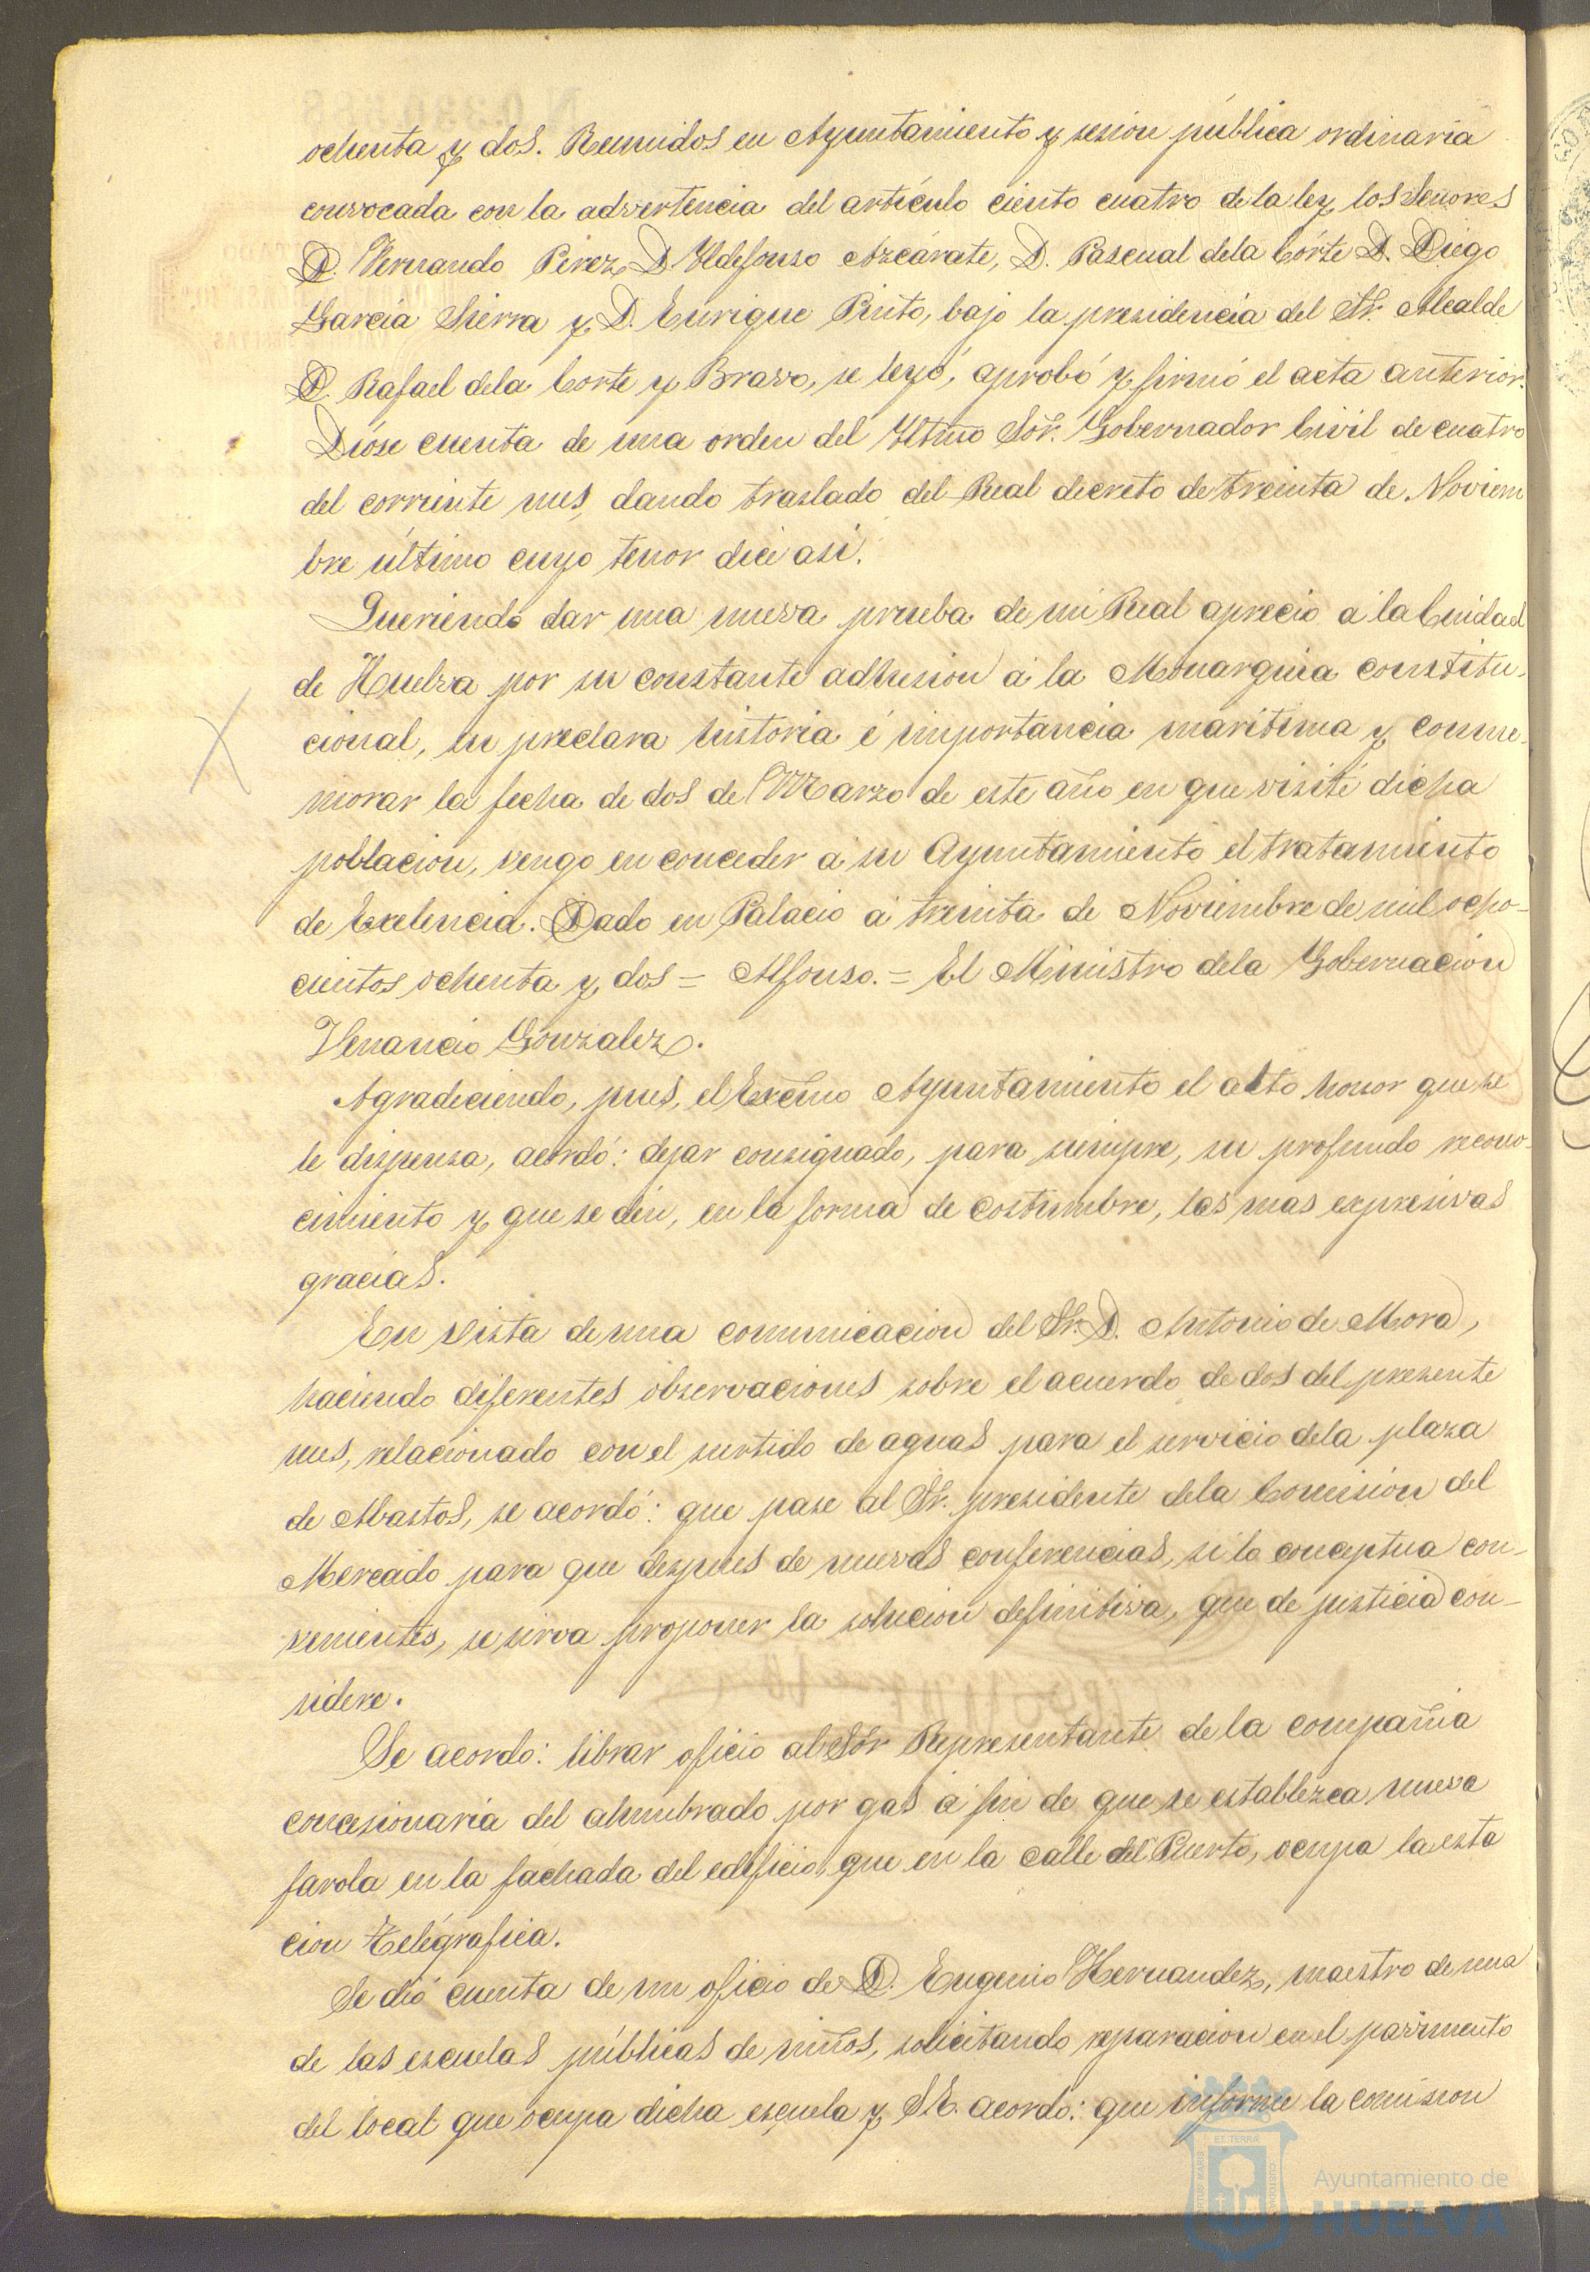 ochenta y dos. Reunidos en Ayuntamiento y sesion pública ordinaria
convocada con la advertencia del artículo ciento cuatro de la ley los Señores
D. Fernando Perez, D. Yldefonso Azcárate, D. Pascual dela Córte D. Diego
García Sierra y D. Enrique Pinto, bajo la presidencia del Sr. Alcalde
D. Rafael dela Corte y Bravo, se leyó, aprobó y firmó el acta anterior.
Dióse cuenta de una orden del Yltmo Sór. Gobernador Civil de cuatro
del corriente mes, dando traslado del Real decreto de treinta de Noviem
bre último cuyo tenor dice asi.
Queriendo dar una nueva prueba de mi Real aprecio á la Ciudad
de Huelva por su constante adhesion á la Monarquia constitu-
cional, su preclara historia é importancia maritima y conme-
morar la fecha de dos de Marzo de este año en que visité dicha
poblacion, vengo en conceder á su Ayuntamiento el tratamiento
de Exelencia. Dado en Palacio á treinta de Noviembre de mil ocho-
cientos ochenta y dos = Alfonso. = El Ministro dela Gobernacion
Venancio Gonzalez.
Agradeciendo, pues, el Excmo Ayuntamiento el alto honor que se
le dispensa, acordó: dejar consignado, para siempre, su profundo recono-
cimiento y que se den, en la forma de costumbre, las mas expresivas
gracias.
En vista de una comunicacion del Sr. D. Antonio de Mora,
haciendo diferentes observaciones sobre el acuerdo de dos del presente
mes, relacionado con el surtido de aguas para el servicio dela plaza
de Abastos, se acordó: que pase al Sr. presidente dela Comision del
Mercado para que despues de nuevas conferencias, si lo conceptua con-
venientes, se sirva proponer la solucion definitiva, que de justicia con-
sidere.
Se acordo: librar oficio al Sór Representante de la compañia
concesionaria del alumbrado por gas á fin de que se establezca nueva
farola en la fachada del edificio que en la calle del Puerto, ocupa la esta
cion telégrafica.
Se dió cuenta de un oficio de D. Eugenio Hernandez, maestro de una
de las escuelas públicas de niños, solicitando reparacion en el pavimento
del local que ocupa dicha escuela y S.E. acordó: que informe la comision
Ayuntamiento de
HUELVA